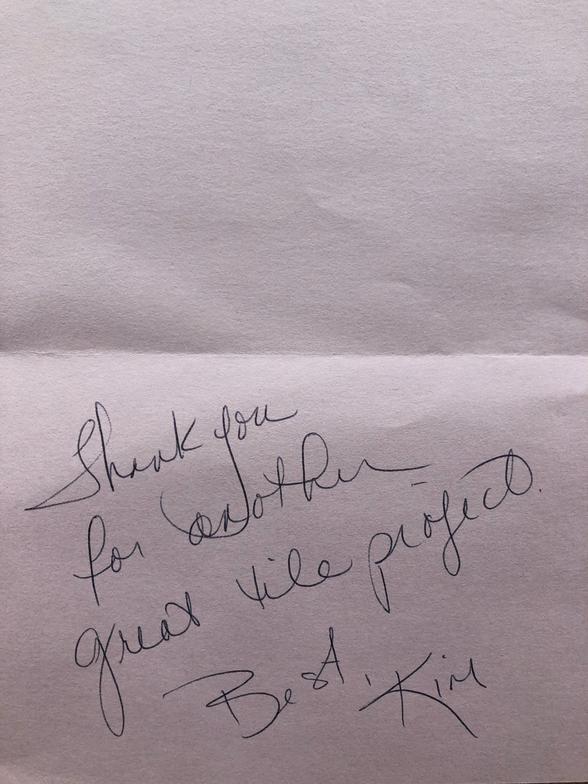 Thank you
for another
great tile project.
Best, Kim